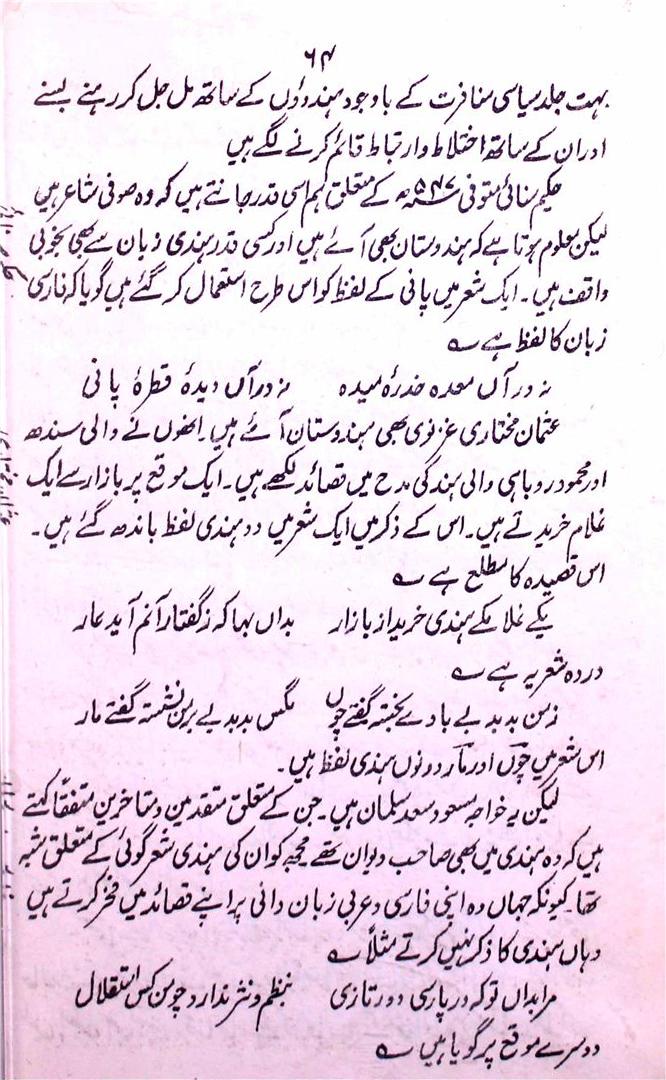 ۶۴
بہت جلد سیاسی منافرت کے باوجود ہندوؤں کے ساتھ مل جل کر رہنے بسنے
اور ان کے ساتھ اختلاط و ارتباط قائم کرنے لگے ہیں
حکیم سنائی متوفی ۵۴۷ھ کے متعلق ہم اسی قدر جانتے ہیں کہ وہ صوفی شاعر ہیں
لیکن معلوم ہوتا ہے کہ ہندوستان بھی آئے ہیں اور کسی قدر ہندی زبان سے بھی بخوبی
واقف ہیں۔ ایک شعر میں پانی کے لفظ کو اس طرح استعمال کر گئے ہیں گویا کہ فارسی
زبان کا لفظ ہے ؎
نہ در آں معدہ خدرۂ میدہ نہ در آں دیدۂ قطرۂ پانی
عثمان مختاری غزنوی بھی ہندوستان آئے ہیں۔ انھوں نے والی سندھ
اور محمود روباہی والی ہند کی مدح میں قصائد لکھے ہیں۔ ایک موقع پر بازار سے ایک
غلام خریدتے ہیں۔ اس کے ذکر میں ایک شعر میں دو ہندی لفظ باندھ گئے ہیں۔
اس قصیدہ کا مطلع ہے ؎
یکے غلامکے ہندی خرید از بازار بداں بہا کہ ز گفتار آنم آید عار
در دہ شعر یہ ہے ؎
زمن بدبدبے بادے بجستہ گفتے چوں مگس بدبدبے برمن نشستہ گفتے مار
اس شعر میں چوں اور مار دونوں ہندی لفظ ہیں۔
لیکن یہ خواجہ مسعود سعد سلمان ہیں۔ جن کے متعلق متقدمین و متاخرین متفقاً کہتے
ہیں کہ وہ ہندی میں بھی صاحب دیوان تھے مجھ کو ان کی ہندی شعر گوئی کے متعلق شبہ
تھا۔ کیونکہ جہاں وہ اپنی فارسی و عربی زبان دانی پر اپنے قصائد میں فخر کرتے ہیں
وہاں ہندی کا ذکر نہیں کرتے مثلاً ؎
مرا بداں تو کہ در پارسی و در تازی بنظم و نثر ندارد چو من کس استقلال
دوسرے موقع پر گویا ہیں ؎